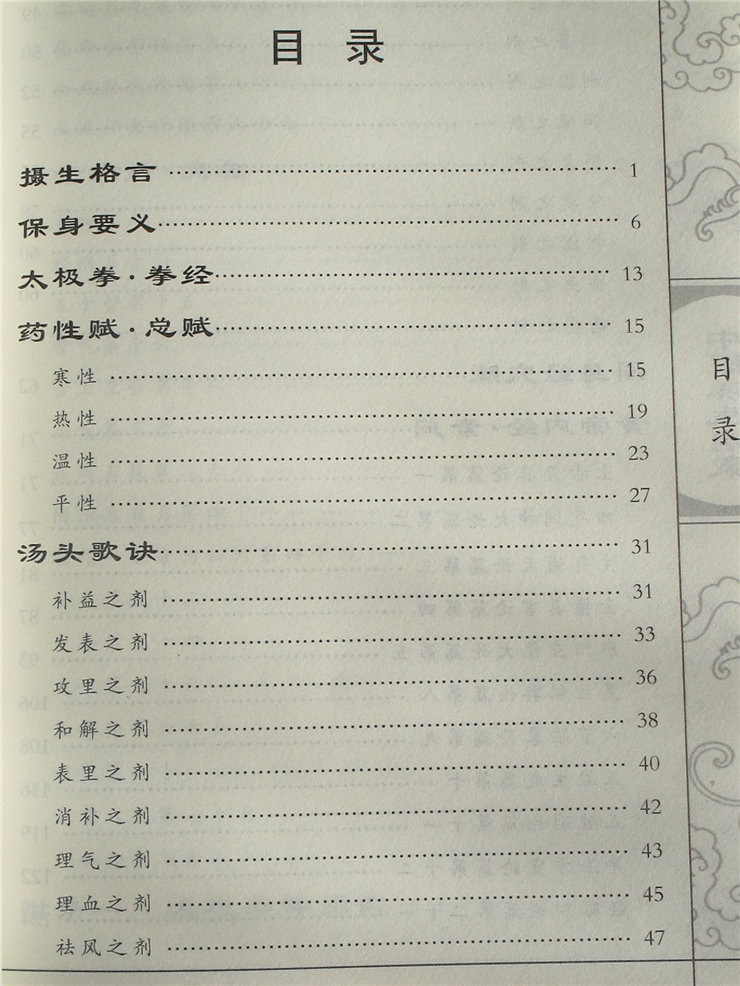 目 录
摄生格言 …… 1
保身要义 …… 6
太极拳·拳经 …… 13
药性赋·总赋 …… 15
寒性 …… 15
热性 …… 19
温性 …… 23
平性 …… 27
汤头歌诀 …… 31
补益之剂 …… 31
发表之剂 …… 33
攻里之剂 …… 36
和解之剂 …… 38
表里之剂 …… 40
消补之剂 …… 42
理气之剂 …… 43
理血之剂 …… 45
祛风之剂 …… 47
目录